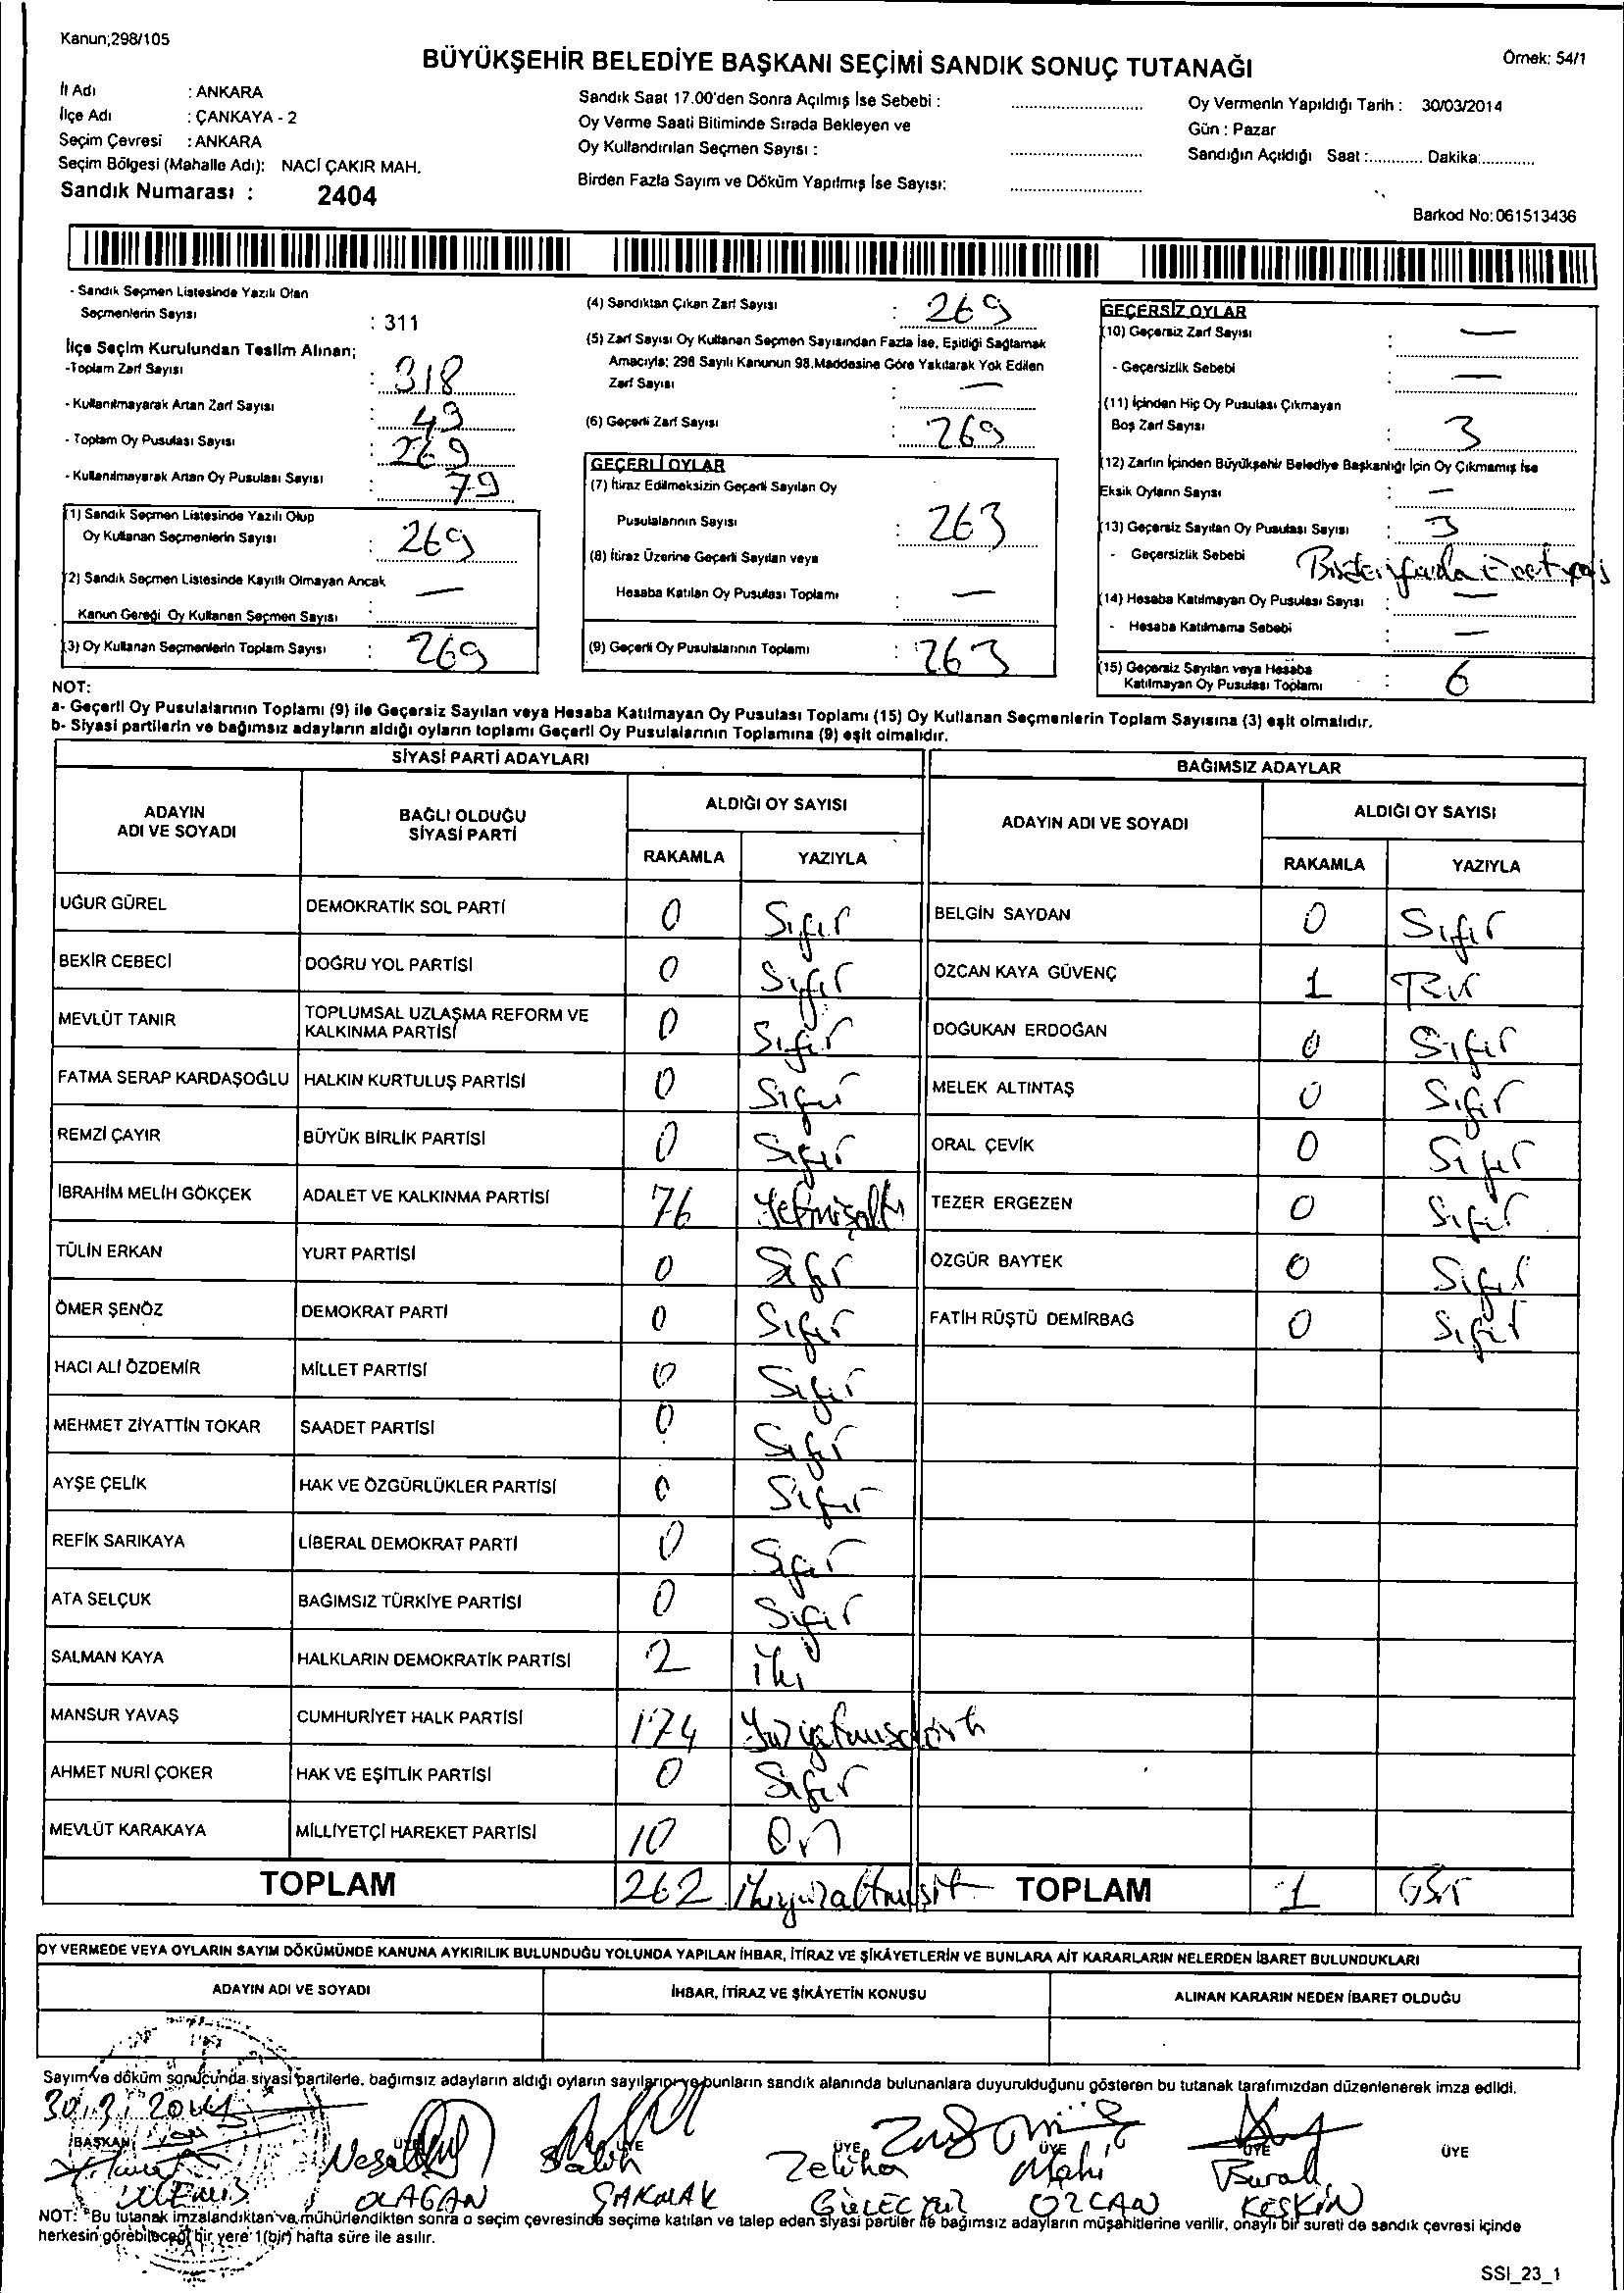 Kanun;298/105
BÜYÜKŞEHİR BELEDİYE BAŞKANI SEÇİMİ SANDIK SONUÇ TUTANAĞI
Örnek: 54/1
İl Adı : ANKARA
İlçe Adı : ÇANKAYA - 2
Seçim Çevresi : ANKARA
Seçim Bölgesi (Mahalle Adı): NACİ ÇAKIR MAH.
Sandık Numarası : 2404
Sandık Saat 17.00'den Sonra Açılmış İse Sebebi :
Oy Verme Saati Bitiminde Sırada Bekleyen ve
Oy Kullandırılan Seçmen Sayısı :
Birden Fazla Sayım ve Döküm Yapılmış İse Sayısı:
Oy Vermenin Yapıldığı Tarih : 30/03/2014
Gün : Pazar
Sandığın Açıldığı Saat :............ Dakika:............
Barkod No:061513436
- Sandık Seçmen Listesinde Yazılı Olan
Seçmenlerin Sayısı : 311
İlçe Seçim Kurulundan Teslim Alınan;
-Toplam Zarf Sayısı : 318
- Kullanılmayarak Artan Zarf Sayısı : 49
- Toplam Oy Pusulası Sayısı : 269
- Kullanılmayarak Artan Oy Pusulası Sayısı : 79
(1) Sandık Seçmen Listesinde Yazılı Olup
Oy Kullanan Seçmenlerin Sayısı : 269
(2) Sandık Seçmen Listesinde Kayıtlı Olmayan Ancak
Kanun Gereği Oy Kullanan Seçmen Sayısı —
(3) Oy Kullanan Seçmenlerin Toplam Sayısı : 269
(4) Sandıktan Çıkan Zarf Sayısı : 269
(5) Zarf Sayısı Oy Kullanan Seçmen Sayısından Fazla İse, Eşitliği Sağlamak
Amacıyla; 298 Sayılı Kanunun 98.Maddesine Göre Yakılarak Yok Edilen
Zarf Sayısı : —
(6) Geçerli Zarf Sayısı : 269
GEÇERLİ OYLAR
(7) İtiraz Edilmeksizin Geçerli Sayılan Oy
Pusulalarının Sayısı : 263
(8) İtiraz Üzerine Geçerli Sayılan veya
Hesaba Katılan Oy Pusulası Toplamı : —
(9) Geçerli Oy Pusulalarının Toplamı : 263
GEÇERSİZ OYLAR
(10) Geçersiz Zarf Sayısı : —
- Geçersizlik Sebebi : —
(11) İçinden Hiç Oy Pusulası Çıkmayan
Boş Zarf Sayısı : 3
(12) Zarfın İçinden Büyükşehir Belediye Başkanlığı İçin Oy Çıkmamış İse
Eksik Oyların Sayısı : —
(13) Geçersiz Sayılan Oy Pusulası Sayısı : 3
- Geçersizlik Sebebi
(14) Hesaba Katılmayan Oy Pusulası Sayısı : —
- Hesaba Katılmama Sebebi : —
(15) Geçersiz Sayılan veya Hesaba
Katılmayan Oy Pusulası Toplamı : 6
NOT:
a- Geçerli Oy Pusulalarının Toplamı (9) ile Geçersiz Sayılan veya Hesaba Katılmayan Oy Pusulası Toplamı (15) Oy Kullanan Seçmenlerin Toplam Sayısına (3) eşit olmalıdır.
b- Siyasi partilerin ve bağımsız adayların aldığı oyların toplamı Geçerli Oy Pusulalarının Toplamına (9) eşit olmalıdır.
SİYASİ PARTİ ADAYLARI
ADAYIN ADI VE SOYADI
BAĞLI OLDUĞU SİYASİ PARTİ
ALDIĞI OY SAYISI
RAKAMLA YAZIYLA
UĞUR GÜREL DEMOKRATİK SOL PARTİ 0 Sıfır
BEKİR CEBECİ DOĞRU YOL PARTİSİ 0 Sıfır
MEVLÜT TANIR TOPLUMSAL UZLAŞMA REFORM VE KALKINMA PARTİSİ 0 Sıfır
FATMA SERAP KARDAŞOĞLU HALKIN KURTULUŞ PARTİSİ 0 Sıfır
REMZİ ÇAYIR BÜYÜK BİRLİK PARTİSİ 0 Sıfır
İBRAHİM MELİH GÖKÇEK ADALET VE KALKINMA PARTİSİ 76 Yetmişaltı
TÜLİN ERKAN YURT PARTİSİ 0 Sıfır
ÖMER ŞENÖZ DEMOKRAT PARTİ 0 Sıfır
HACI ALİ ÖZDEMİR MİLLET PARTİSİ 0 Sıfır
MEHMET ZİYATTİN TOKAR SAADET PARTİSİ 0 Sıfır
AYŞE ÇELİK HAK VE ÖZGÜRLÜKLER PARTİSİ 0 Sıfır
REFİK SARIKAYA LİBERAL DEMOKRAT PARTİ 0 Sıfır
ATA SELÇUK BAĞIMSIZ TÜRKİYE PARTİSİ 0 Sıfır
SALMAN KAYA HALKLARIN DEMOKRATİK PARTİSİ 2 iki
MANSUR YAVAŞ CUMHURİYET HALK PARTİSİ 174 Yüzyetmişdört
AHMET NURİ ÇOKER HAK VE EŞİTLİK PARTİSİ 0 Sıfır
MEVLÜT KARAKAYA MİLLİYETÇİ HAREKET PARTİSİ 10 On
TOPLAM 262
BAĞIMSIZ ADAYLAR
ADAYIN ADI VE SOYADI
ALDIĞI OY SAYISI
RAKAMLA YAZIYLA
BELGİN SAYDAN 0 Sıfır
ÖZCAN KAYA GÜVENÇ 1 Bir
DOĞUKAN ERDOĞAN 0 Sıfır
MELEK ALTINTAŞ 0 Sıfır
ORAL ÇEVİK 0 Sıfır
TEZER ERGEZEN 0 Sıfır
ÖZGÜR BAYTEK 0 Sıfır
FATİH RÜŞTÜ DEMİRBAĞ 0 Sıfır
TOPLAM 1
OY VERMEDE VEYA OYLARIN SAYIM DÖKÜMÜNDE KANUNA AYKIRILIK BULUNDUĞU YOLUNDA YAPILAN İHBAR, İTİRAZ VE ŞİKÂYETLERİN VE BUNLARA AİT KARARLARIN NELERDEN İBARET BULUNDUKLARI
ADAYIN ADI VE SOYADI
İHBAR, İTİRAZ VE ŞİKÂYETİN KONUSU
ALINAN KARARIN NEDEN İBARET OLDUĞU
Sayım ve döküm sonucunda siyasi partilerle, bağımsız adayların aldığı oyların sayılarını ve bunların sandık alanında bulunanlara duyurulduğunu gösteren bu tutanak tarafımızdan düzenlenerek imza edildi.
30.3.2014
BAŞKAN ÜYE ÜYE ÜYE ÜYE ÜYE ÜYE
Salih Zeliha Mahi Burak
OLAGAN ÖZCAN KESKİN
NOT: "Bu tutanak imzalandıktan ve mühürlendikten sonra o seçim çevresinde seçime katılan ve talep eden siyasi partiler ile bağımsız adayların müşahitlerine verilir, onaylı bir sureti de sandık çevresi içinde
herkesin görebileceği bir yere 1(bir) hafta süre ile asılır.
SSI_23_1